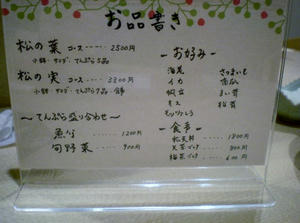 お品書き
松の葉 コース ‥‥‥ 2500円
小鉢・サラダ・天ぷら5品
松の実 コース ‥‥‥ 3300円
小鉢・サラダ・天ぷら7品・食事
〜てんぷら盛り合わせ〜
魚介 1200円
旬野菜 900円
- お好み -
海老 さつまいも
イカ 南瓜
帆立 まい茸
キス 椎茸
- 食事 -
天丼 1800円
天茶づけ 800円
梅茶づけ 600円